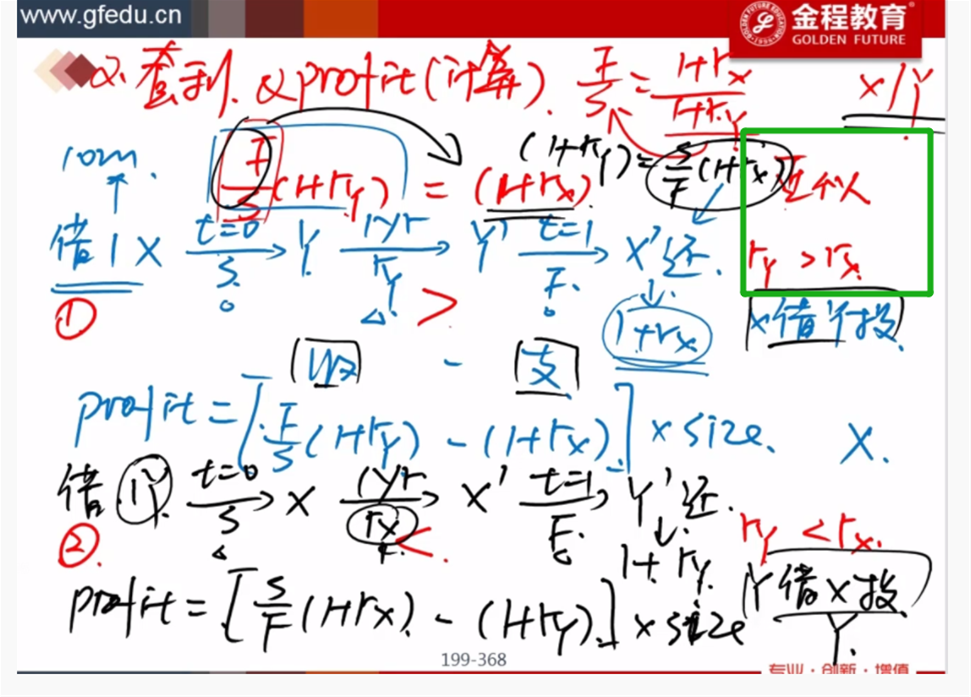 www.gfedu.cn
金程教育
GOLDEN FUTURE
2. 套利 & profit (计算). F/S = (1+rx)/(1+ry) X/Y
10m.
F/S (1+ry) = (1+rx). (1+ry) = S/F (1+rx)
ry > rx.
借 1 X t=0 S → Y 1yr ry → Y' t=1 F. → X' 还.
① > 1+rx
X借Y投.
收 - 支
profit = [F/S (1+ry) - (1+rx).] × size. X.
借 1Y t=0 S → X 1yr rx → X' t=1 F. → Y' 还.
② < 1+ry. ry < rx.
Y借X投
profit = [S/F (1+rx) - (1+ry).] × size Y.
199-368
专业·创新·增值